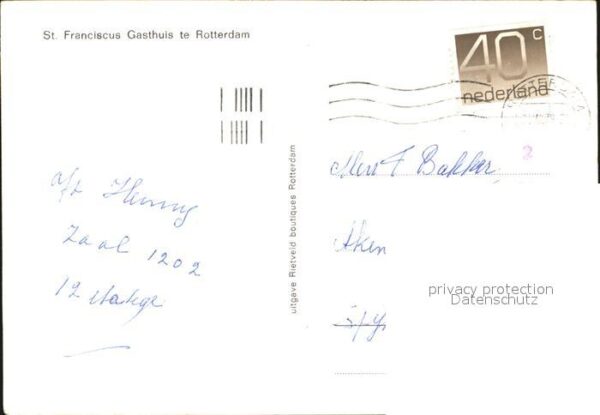 St. Franciscus Gasthuis te Rotterdam
40 c
nederland
uitgave Rietveld boutiques Rotterdam
Zaal 1202
12 etage
Mevr F Bakker
2
privacy protection
Datenschutz